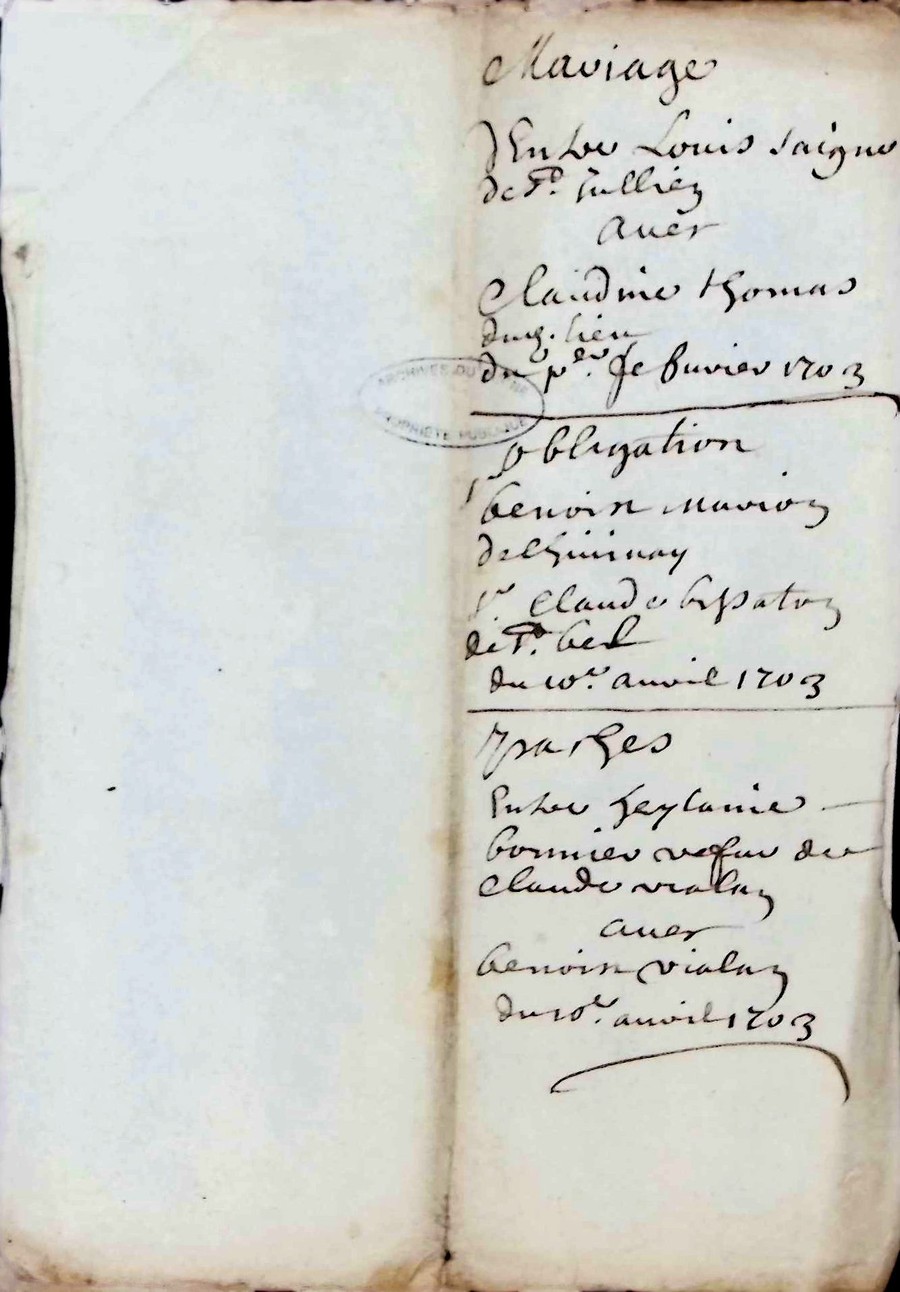 Mariage
d'Entre Louis saigne
de St. Jullien
avec
Claudine thomas
dud. lieu
du per. febvrier 1703
ARCHIVES DU
PROPRIÉTÉ PUBLIQUE
obligation
benoist marion
de
pr Claude
de St. bel
du 10e. avril 1703
paches
Entre
bonnier vefve de
Claude vialan
avec
benoist vialan
du 10e. avril 1703